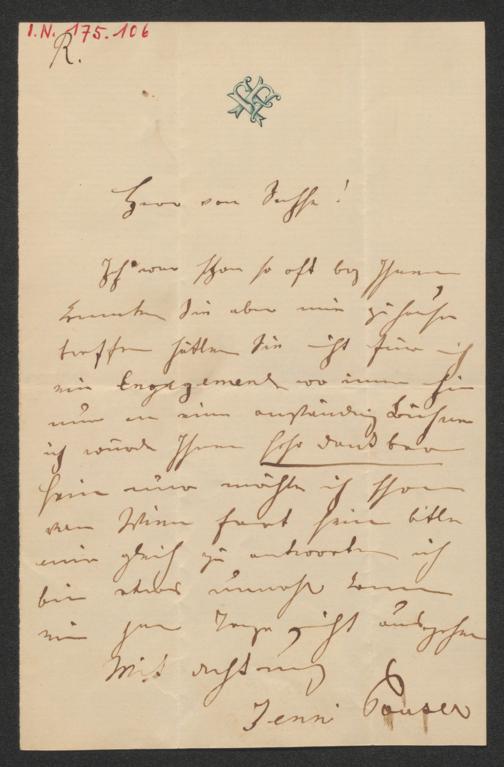 I.N. 175.106
R.
Herr von Sachse!
Ich war schon so oft bey Ihnen
konnte Sie aber nie zuhause
treffen hätten Sie nicht für mich
ein Engagement wo immer hin
nur an eine anständige Bühne
ich würde Ihnen sehr dankbar
sein nur möchte ich schon
von Wien fort sein bitte
mir gleich zu antworten ich
bin etwas unwohl kann
ein paar Tage nicht ausgehen
Mit Achtung
Jenni Pouser